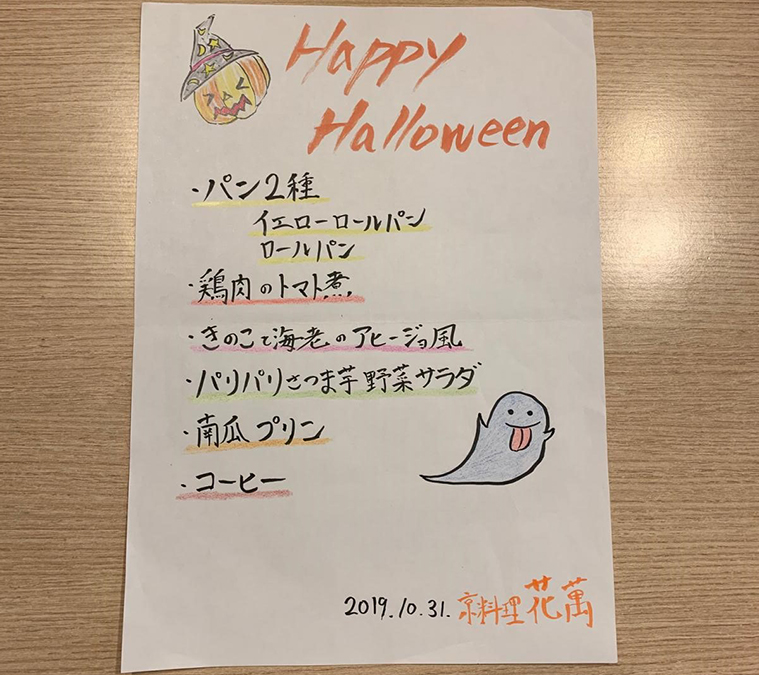 Happy
Halloween
・パン2種
イエローロールパン
ロールパン
・鶏肉のトマト煮
・きのこと海老のアヒージョ風
・パリパリさつま芋野菜サラダ
・南瓜プリン
・コーヒー
2019.10.31. 京料理 花萬